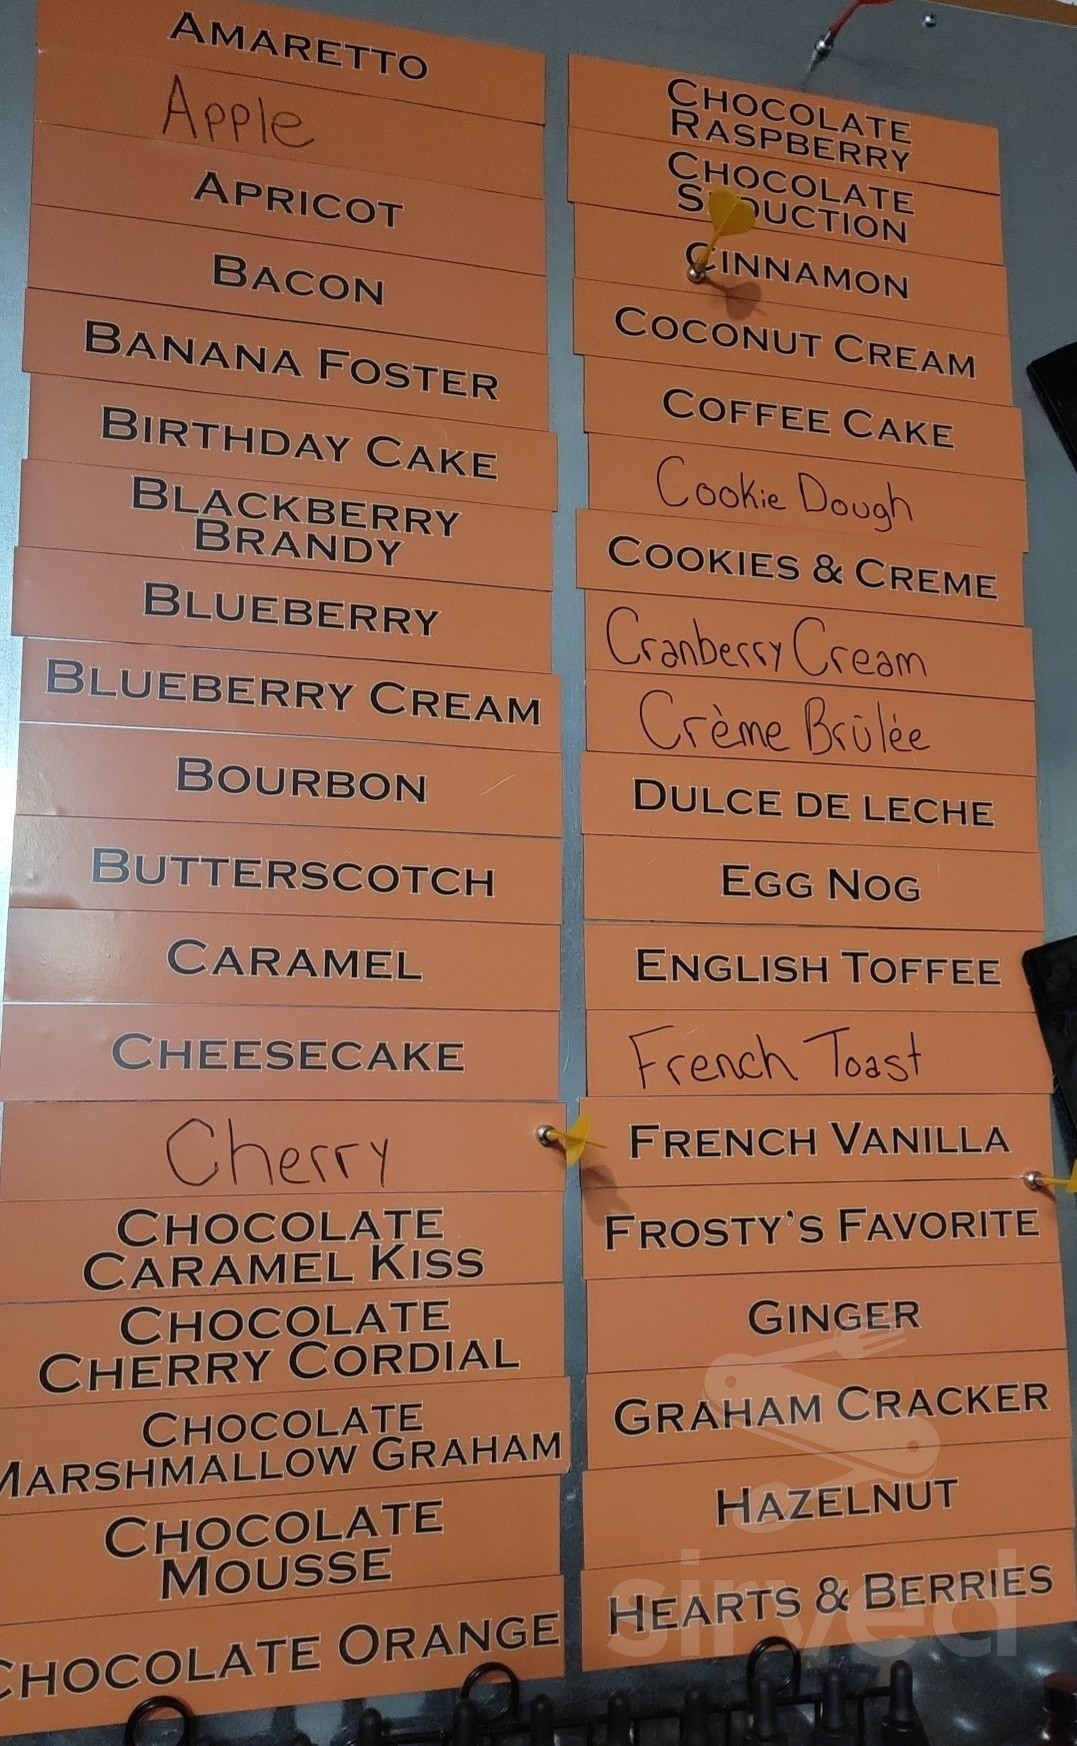 AMARETTO
Apple
APRICOT
BACON
BANANA FOSTER
BIRTHDAY CAKE
BLACKBERRY
BRANDY
BLUEBERRY
BLUEBERRY CREAM
BOURBON
BUTTERSCOTCH
CARAMEL
CHEESECAKE
Cherry
CHOCOLATE
CARAMEL KISS
CHOCOLATE
CHERRY CORDIAL
CHOCOLATE
MARSHMALLOW GRAHAM
CHOCOLATE
MOUSSE
CHOCOLATE ORANGE
CHOCOLATE
RASPBERRY
CHOCOLATE
SEDUCTION
CINNAMON
COCONUT CREAM
COFFEE CAKE
Cookie Dough
COOKIES & CREME
Cranberry Cream
Crème Brûlée
DULCE DE LECHE
EGG NOG
ENGLISH TOFFEE
French Toast
FRENCH VANILLA
FROSTY'S FAVORITE
GINGER
GRAHAM CRACKER
HAZELNUT
HEARTS & BERRIES
sirved